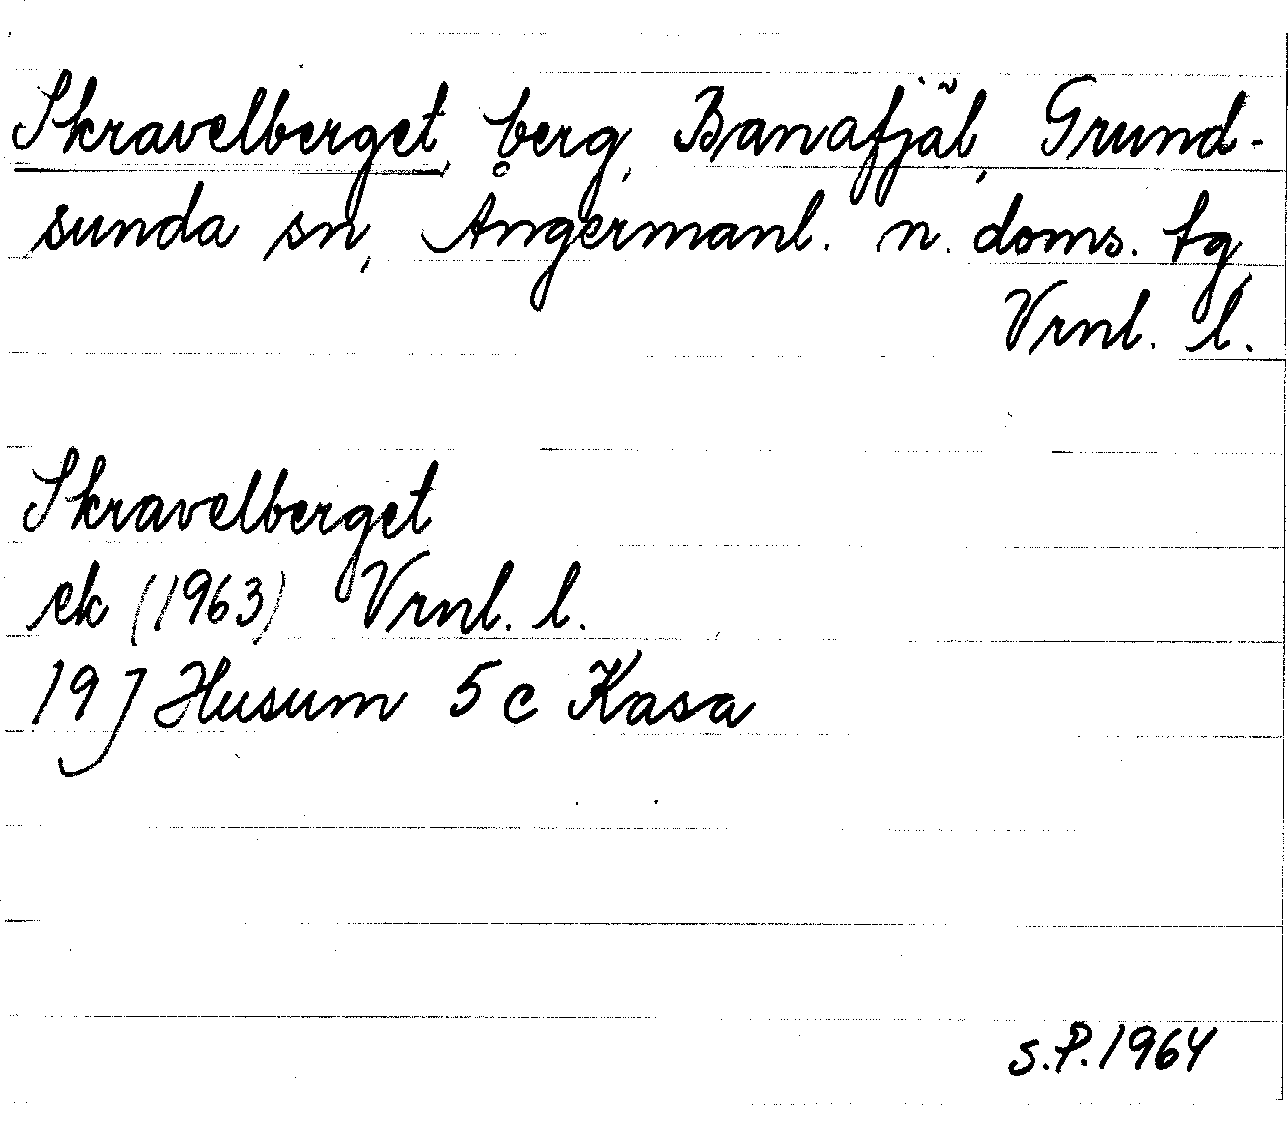 Skravelberget, berg, Banafjäl, Grund-
sunda sn, Ångermanl. n. doms. tg,
Vrnl. l.
Skravelberget
ek (1963) Vrnl. l.
19 J Husum 5 c Kasa
S.P. 1964